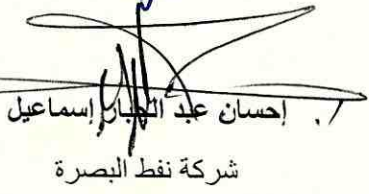 إحسان عبد الجبار إسماعيل
شركة نفط البصرة